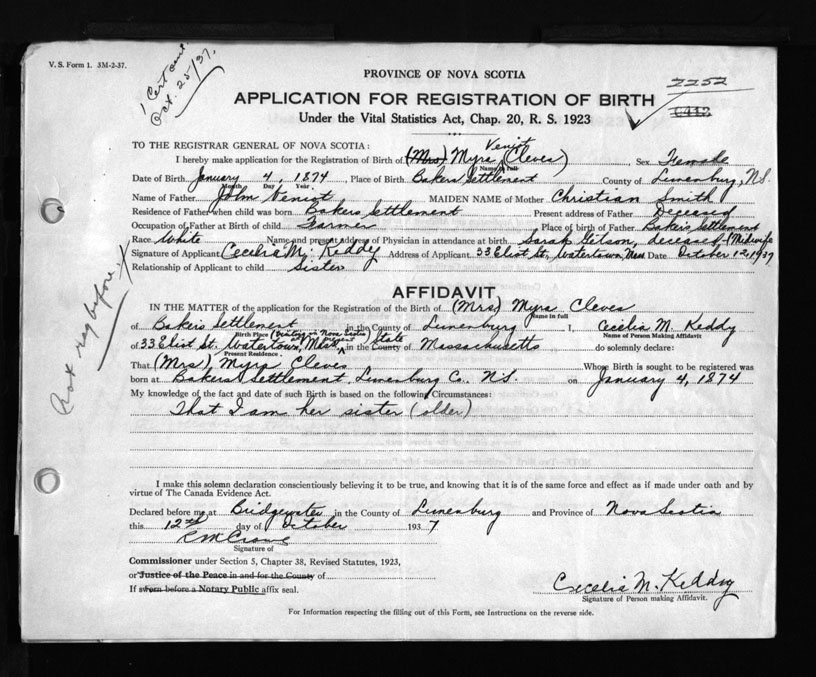 V. S. Form 1. 3M-2-37.
1 Cert
Oct. 25/37.
PROVINCE OF NOVA SCOTIA
2252
APPLICATION FOR REGISTRATION OF BIRTH
Under the Vital Statistics Act, Chap. 20, R. S. 1923
TO THE REGISTRAR GENERAL OF NOVA SCOTIA:
Veniot
I hereby make application for the Registration of Birth of (Mrs) Myra (Cleves) Sex Female
Name in full
Date of Birth January 4, 1874, Place of Birth Bakers Settlement County of Lunenburg, N.S.
Month Day Year
Name of Father John Veniot MAIDEN NAME of Mother Christian Smith
Residence of Father when child was born Bakers Settlement Present address of Father Deceased
Occupation of Father at Birth of child Farmer Place of birth of Father Bakers Settlement
Race White Name and present address of Physician in attendance at birth Sarah Gilson, deceased (Midwife
Signature of Applicant Cecelia M. Keddy Address of Applicant 33 Eliot St, Watertown, Mass Date October 12, 1937
Relationship of Applicant to child sister
Not reg before
AFFIDAVIT
IN THE MATTER of the application for the Registration of the Birth of (Mrs) Myra Cleves
Name in full
of Bakers Settlement in the County of Lunenburg I, Cecelia M. Keddy
Birth Place (Visiting in Nova Scotia at present Name of Person Making Affidavit
of 33 Eliot St. Watertown, Mass, in the County of State Massachusetts do solemnly declare:
Present Residence.
That (Mrs), Myra Cleves Whose Birth is sought to be registered was
born at Bakers Settlement, Lunenburg Co., N.S. on January 4, 1874
My knowledge of the fact and date of such Birth is based on the following Circumstances:
That I am her sister (older)
I make this solemn declaration conscientiously believing it to be true, and knowing that it is of the same force and effect as if made under oath and by
virtue of The Canada Evidence Act.
Declared before me at Bridgewater in the County of Lunenburg and Province of Nova Scotia
this 12th day of October 1937
R M Crowe
Signature of
Commissioner under Section 5, Chapter 38, Revised Statutes, 1923,
or Justice of the Peace in and for the County of
If sworn before a Notary Public affix seal.
Cecelia M. Keddy
Signature of Person making Affidavit.
For Information respecting the filling out of this Form, see Instructions on the reverse side.